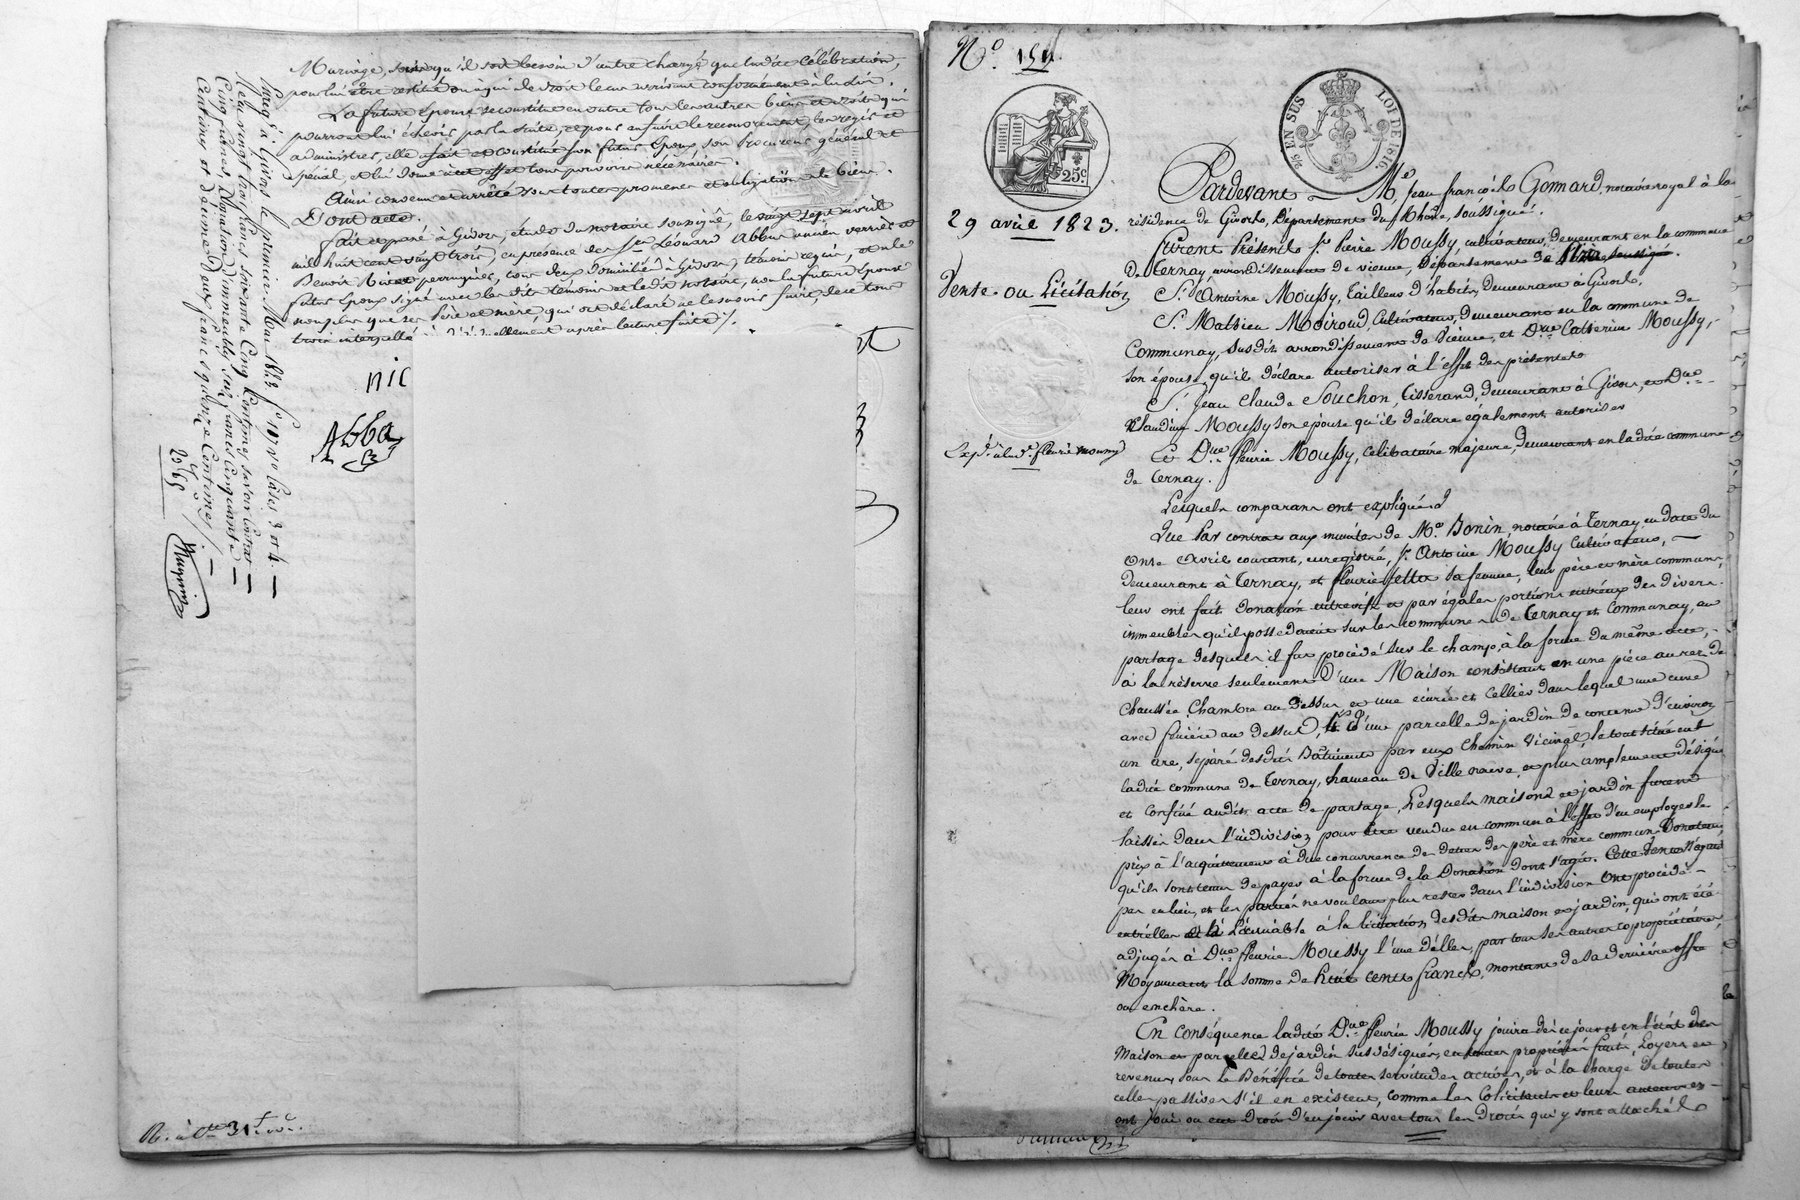 Mariage, sans qu'il soit besoin d'autre charge que ladite célébration,
pour lui être restitué ou à qui de droit le cas arrivant conformément à la loi.
La future épouse se constitue en outre tous les autres biens et droits qui
pourront lui échoir par la suite, et pour en suivre le recouvrement, les régir et
administrer, elle a fait et constitué son futur époux, son Procureur général et
spécial, et lui donne à cet effet tous pouvoirs nécessaires.
Ainsi convenu et arrêté sous toutes promesses et obligation de biens.
Dont acte.
fait et passé à Givors, étude du notaire soussigné, le vingt sept avril
mil huit cent vingt trois, en présence des Srs Léonard Abba ancien verrier et
Benoit perruquier, tous deux domiciliés à Givors, témoins requis, et le
futur Epoux signé avec les dits témoins et le dit notaire, non la future Epouse
non plus que ses Père et mere qui ont déclaré ne le savoir faire, de ce tous
trois interpellés après lecture faite /.
nic
Abba
Enreg.é à Givors le premier Mai 1823 f.o 107 v.o Cases 3 et 4
Reçu vingt trois francs soixante Cinq Centimes, savoir Contrat
Cinq francs, Donation d'immeubles six francs cinquante
Centimes et decime Deux francs quinze Centimes /.
23 65
N.o 154.
25 EN SUS LOI DE 1816
25.c
29 avril 1823.
Vente. ou Licitation
Exp.on à lad. fleurie moussy
Pardevant M.e Jean françois Gonnard, notaire royal à la
résidence de Givors, Département du Rhône, soussigné.
furent Présents Sr. Pierre Moussy, cultivateur, demeurant en la commune
de Ternay arrondissement de vienne, Département de l'Isère
S.r Antoine Moussy, Tailleur d'habits, Demeurant à Givors,
S.r Mathieu Moiroud, Cultivateur, demeurant en la commune de
Communay, susdit arrondissement de Vienne, et D.me Catherine Moussy,
son épouse, qu'il déclare autoriser à l'effet des présentes
S.r Jean Claude Souchon, tisserand, demeurant à Givors, et D.me
Claudine Moussy son épouse qu'il déclare également autoriser
Et D.lle fleurie Moussy, célibataire majeure, demeurant en ladite commune
de Ternay.
Lesquels comparans ont expliqué
Que Par contrat aux minutes de M.e Bonin, notaire à Ternay en date du
onze avril courant, enregistré, S.r Antoine Moussy Cultivateur,
demeurant à Ternay, et fleurie Jetta sa femme, leur père et mère communs
leur ont fait donation entrevifs et par égales portions entr'eux des divers
immeubles qu'ils possedaient sur les communes de Ternay et Communay, au
partage desquels il fut procédé sur le champ, à la forme du même acte,
à la réserve seulement d'une Maison consistant en une pièce au rez de
chaussée Chambre au dessus et une écurie et Cellier dans lequel une cuve
avec fenière au dessus, d'une parcelle de jardin de contenue d'environ
un are, séparé desdits Bâtiments par un Chemin vicinal, le tout situé en
ladite commune de Ternay, hameau de Ville neuve, et plus amplement désigné
et confiné audit acte de partage, Lesquels maison et jardin furent
laissés dans l'indivision pour être vendus en commun à l'effet d'en employer le
prix à l'acquittement à due concurrence des dettes des père et mère communs Donateurs
qu'ils sont tenus de payer à la forme de la Donation dont s'agit. Cette Vente n'ayant
pas eu lieu, et les parties ne voulant plus rester dans l'indivision Ont procédé
entr'elles à l'amiable à la licitation desdits maison et jardin, qui ont été
adjugés à D.lle fleurie Moussy l'une d'elles, par tous ses autres copropriétaires
Moyennant la somme de huit cents francs, montant de sa dernière offre
ou enchère.
En conséquence ladite D.lle fleurie Moussy jouira dès ce jour et en l'état des
Maison et parcelle de jardin susdésignés, en toute propriété fruits, Loyers et
revenus, sous le Bénéfice de toutes servitudes actives, et à la charge de toutes
celles passives s'il en existent, comme les Colicitants et leurs auteurs en
ont joui ou eut Droit d'en jouir avec tous les Droits qui y sont attachés